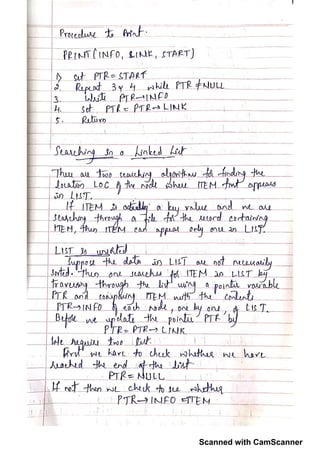 Procedure to Print.
PRINT (INFO, LINK, START)
1) Set PTR = START
2. Repeat 3 y 4 while PTR ≠ NULL
3. Write PTR→INFO
4. Set PTR = PTR→LINK
5. Return
Searching in a Linked List
There are two searching algorithm for finding the
location LOC of the node where ITEM first appears
in LIST.
If ITEM is actually a key value and we are
searching through a file for the record containing
ITEM, then ITEM can appear only one in LIST.
LIST is unsorted
Suppose the data in LIST are not necessarily
sorted. Then one searches for ITEM in LIST by
traversing through the list using a pointer variable
PTR and comparing ITEM with the contents
PTR→INFO of each node, one by one, of LIST.
Before we update the pointer PTR by
PTR = PTR→LINK
We require two
First we have to check whether we have
reached the end of the list
PTR = NULL
If not then we check to see whether
PTR→INFO = ITEM
Scanned with CamScanner